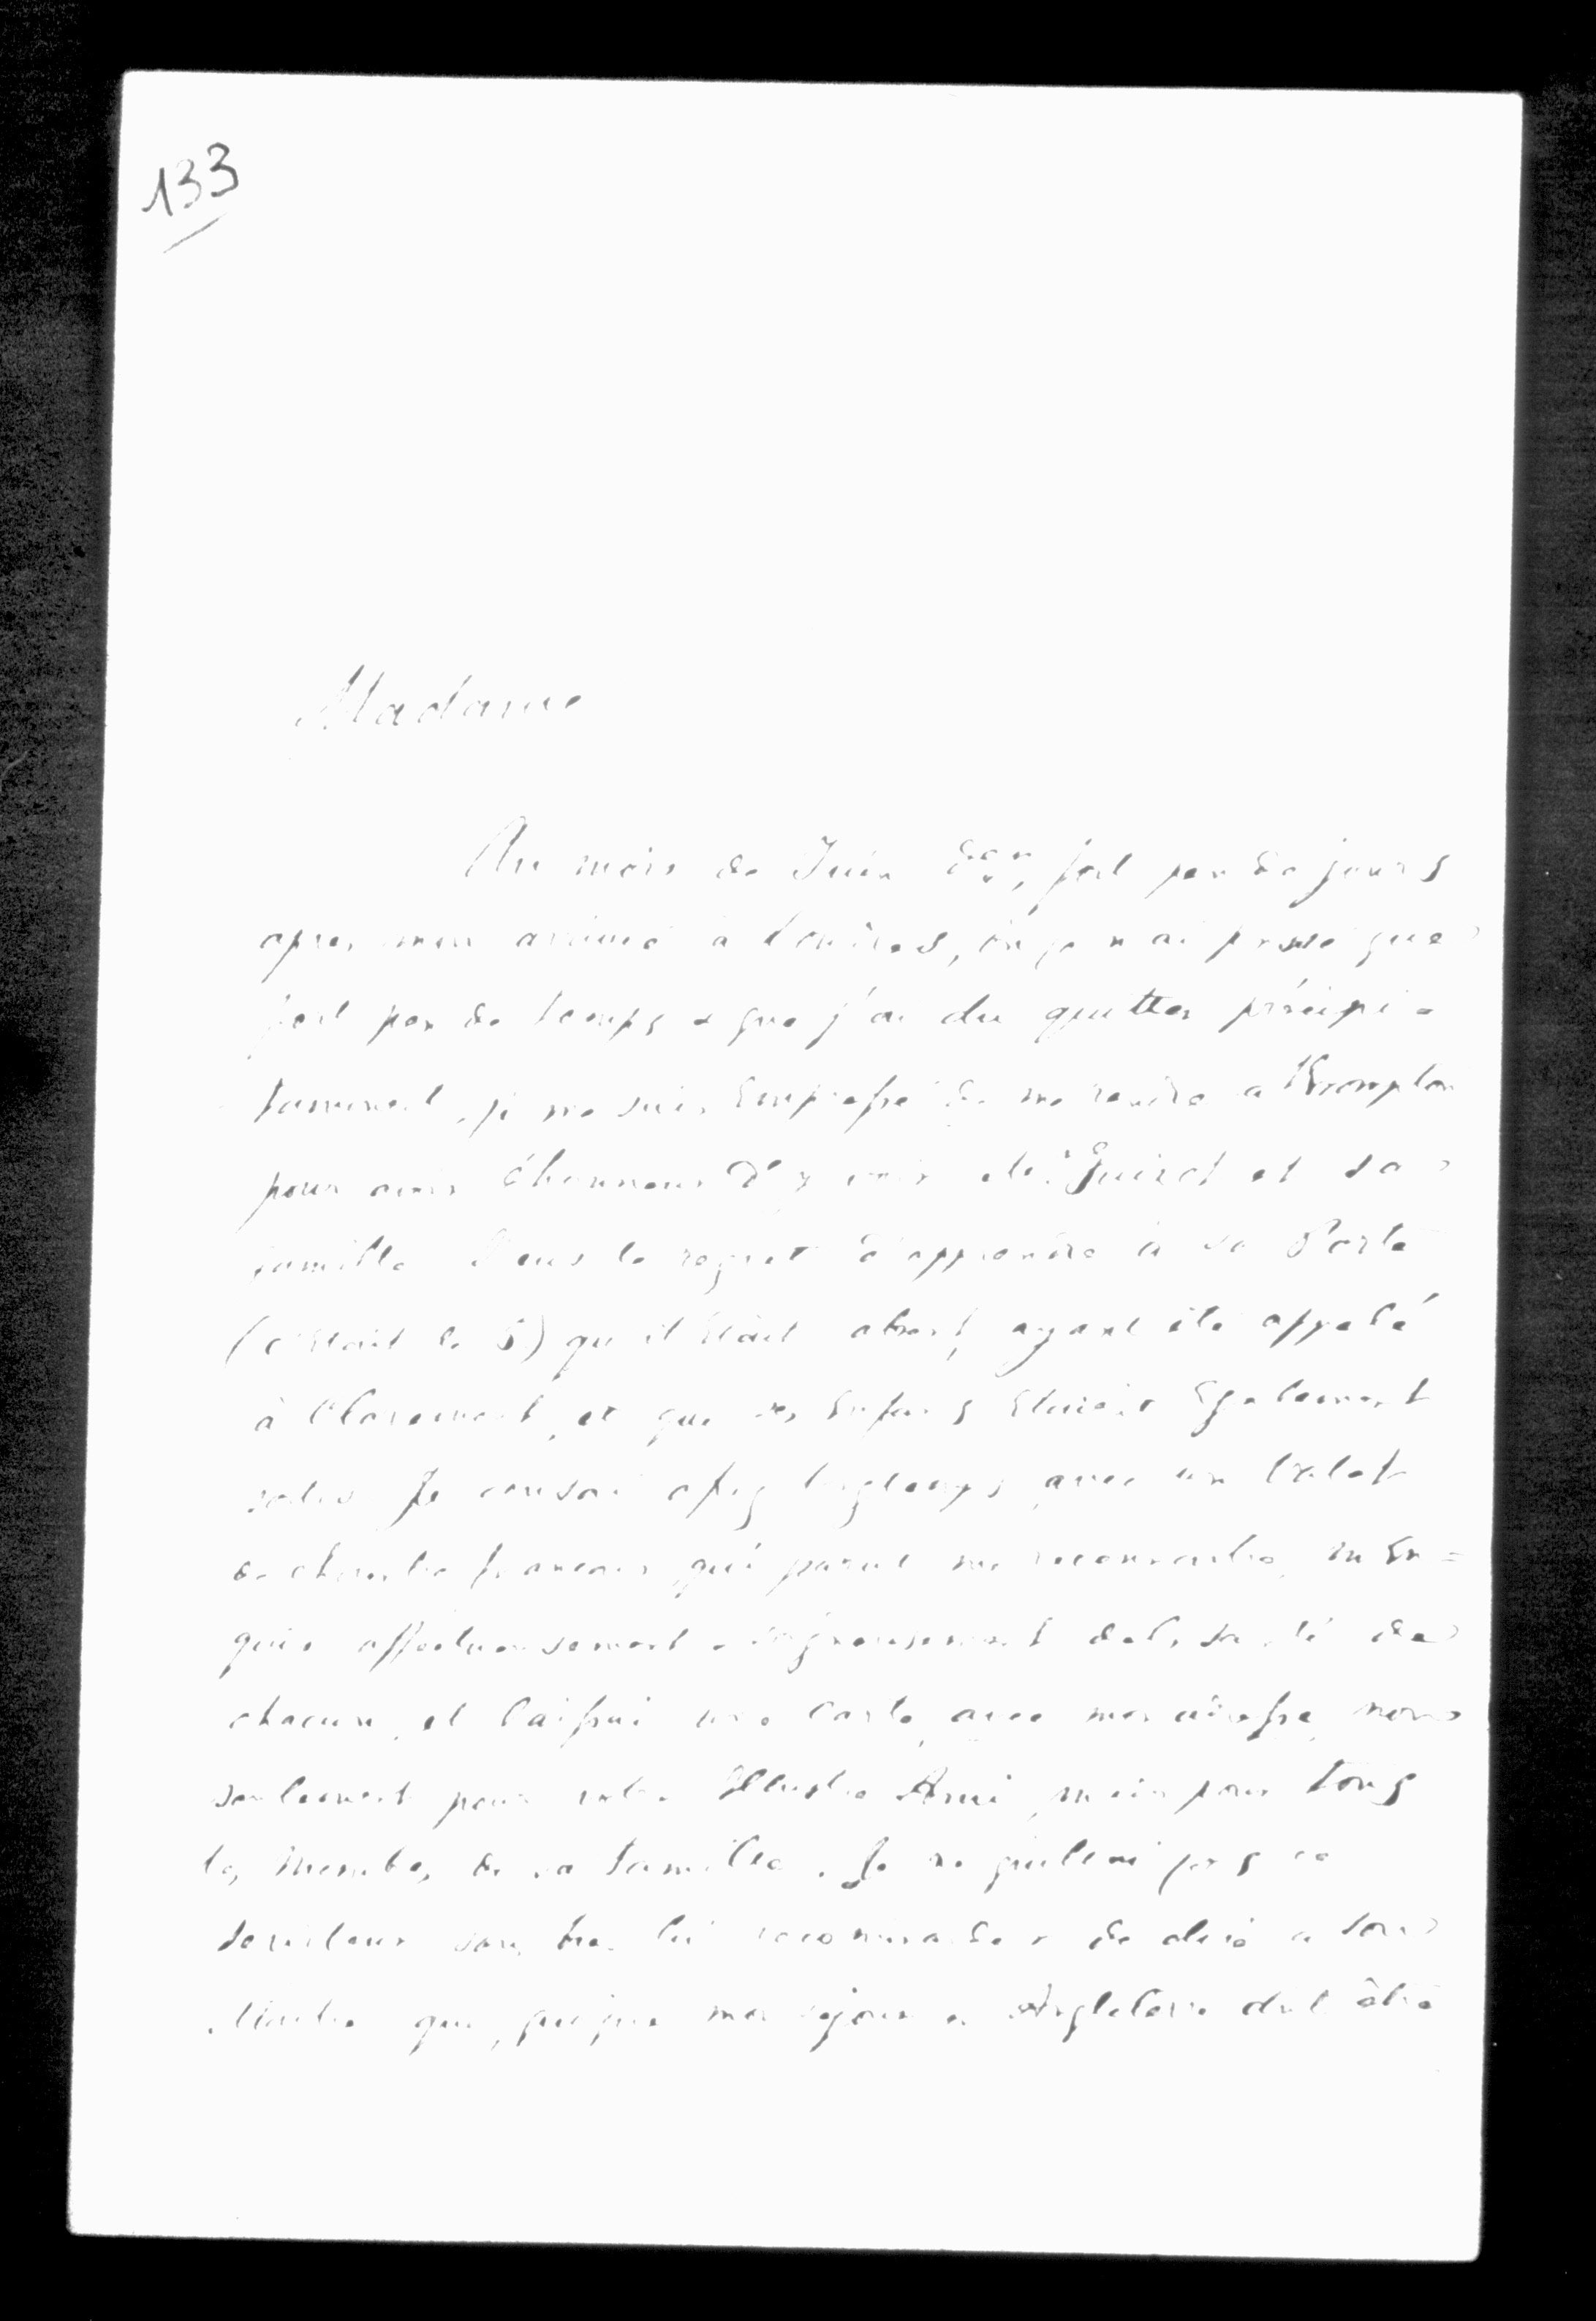 133
Madame
Au mois de Juin der, fort peu de jours
apres mon arrivée à Londres, où je n'ai passé que
fort peu de temps & que j'ai du quitter précipi=
tamment, je me suis Empressé de me rendre a Brompton
pour avoir l'honneur d'y voir Mr. Guizot et sa
famille J'eus le regret d'apprendre à sa Porte
(c'Etait le 5) qu'il Etait absent, ayant été appelé
à Claremont, et que ses Enfans Etaient Egalement
sortis Je causai assez longtemps avec un Valet
de chambre francais qui parut me reconnaitre, m'En=
quis affectueusement & soigneusement de la santé de
chacun, et laissai une Carte, avec mon adresse, non
seulement pour votre Illustre Ami, mais pour tous
les Membres de sa famille. Je ne quittai pas ce
serviteur sans bien lui recommander de dire a son
Maitre que, quoique mon sejour en Angleterre dut être